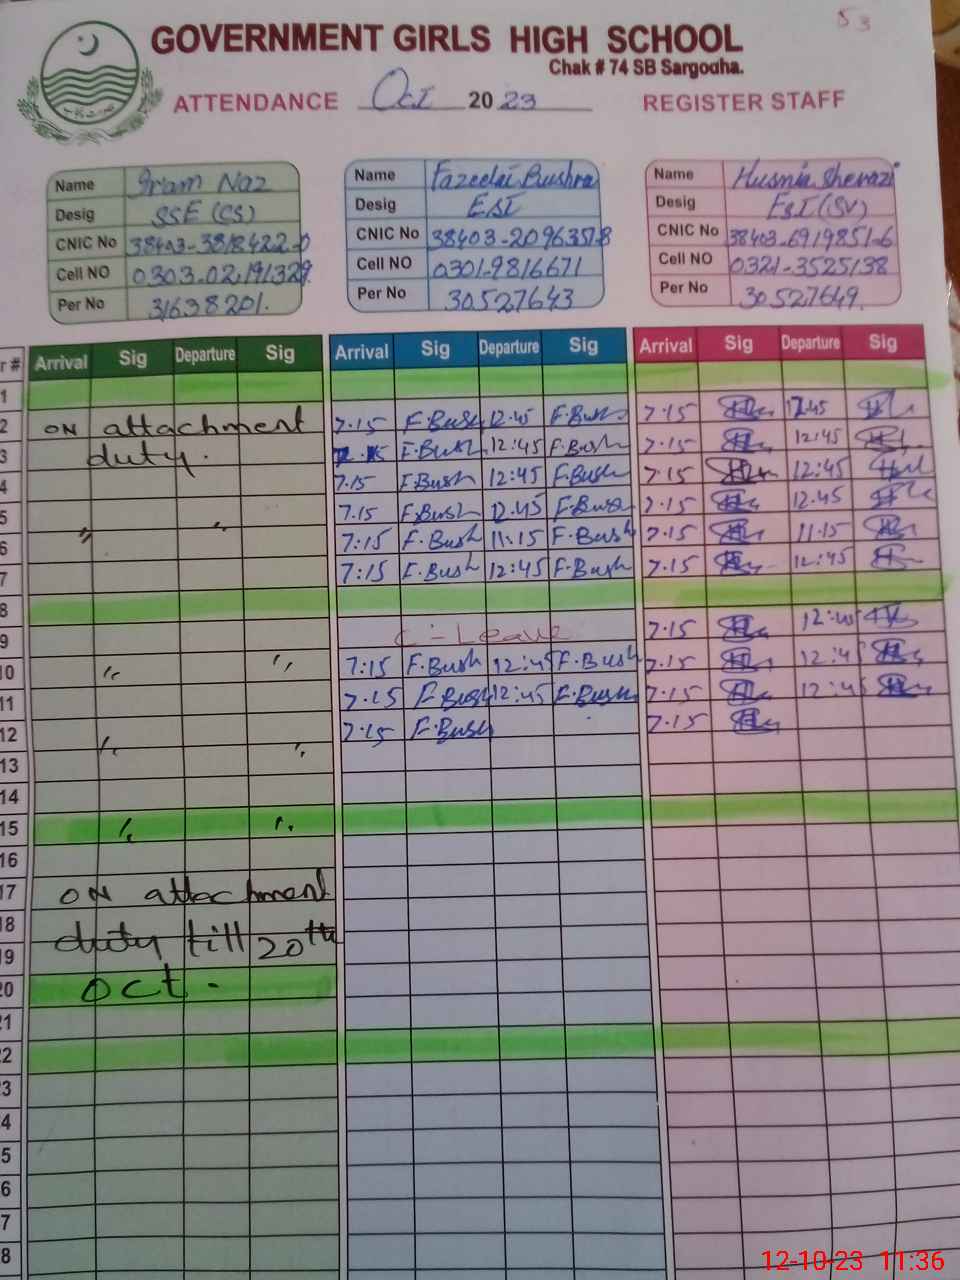 53
GOVERNMENT GIRLS HIGH SCHOOL
Chak # 74 SB Sargodha.
ATTENDANCE Oct 2023 REGISTER STAFF
Name Iram Naz
Desig SSE (CS)
CNIC No 38403-3818422-0
Cell NO 0303-02191329
Per No 31638201.
Name Fazeelai Bushra
Desig ESE
CNIC No 38403-2096357-8
Cell NO 0301-9816671
Per No 30527643
Name Husnia Sherazi
Desig EST (SV)
CNIC No 38403-6919851-6
Cell NO 0321-3525138
Per No 30527649.
r # Arrival Sig Departure Sig Arrival Sig Departure Sig Arrival Sig Departure Sig
1
2 ON attachment 7.15 F.Bush 12:45 F.Bush 7.15 12.45
3 duty. 7.15 F.Bush 12:45 F.Bush 7.15 12:45
4 7.15 F.Bush 12:45 F.Bush 7.15 12:45
5 〃 〃 7.15 F.Bush 12.45 F.Bush 7.15 12.45
6 7:15 F.Bush 11:15 F.Bush 7.15 11.15
7 7:15 F.Bush 12:45 F.Bush 7.15 12:45
8
9 C-Leave 7.15 12:45
10 〃 〃 7:15 F.Bush 12:45 F.Bush 7.15 12:45
11 7.15 F.Bush 12:45 F.Bush 7.15 12:45
12 〃 〃 7.15 F.Bush 7.15
13
14
15 〃 〃
16
17 ON attachment
18 duty till 20th
19
20 Oct.
21
22
3
4
5
6
7
8
12-10-23 11:36